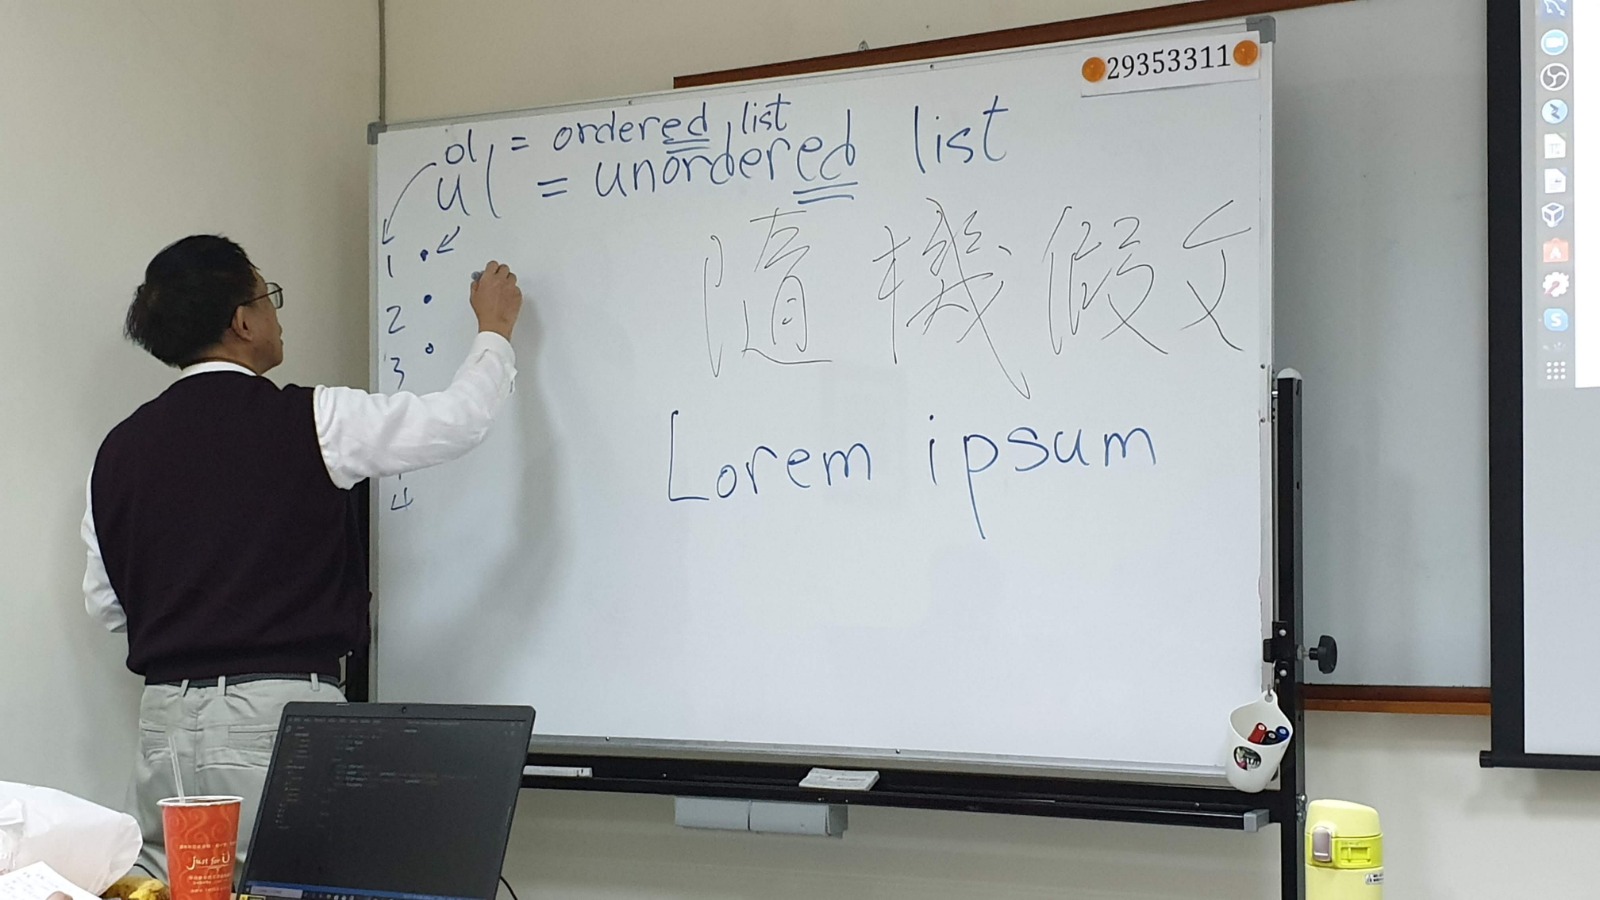 29353311
ol = ordered list
ul = unordered list
1
2
3
4
隨機假文
Lorem ipsum
just for U